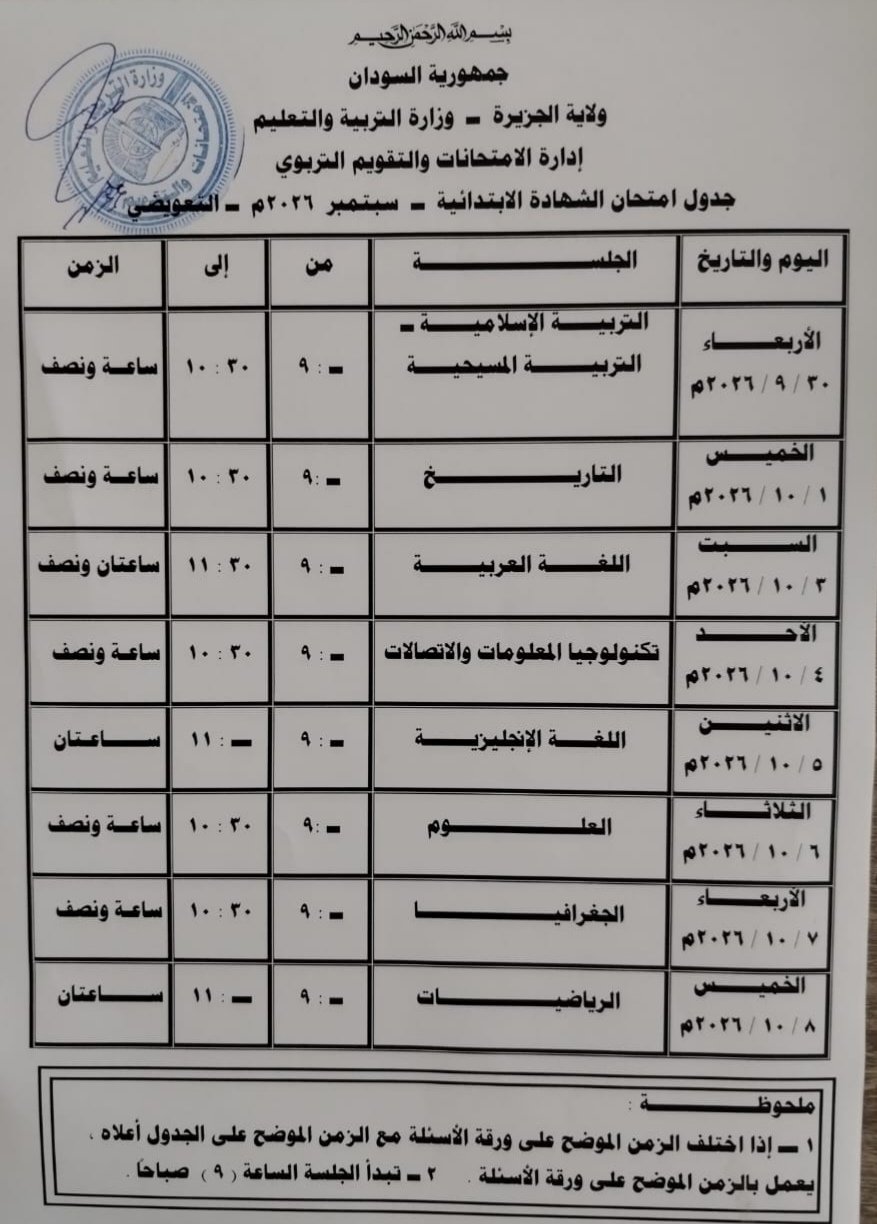 بسم الله الرحمن الرحيم
جمهورية السودان
ولاية الجزيرة – وزارة التربية والتعليم
إدارة الامتحانات والتقويم التربوي
جدول امتحان الشهادة الابتدائية – سبتمبر ٢٠٢٦م – التعويضي
وزارة التربية
اليوم والتاريخ الجلسة من إلى الزمن
الأربعاء ٣٠ / ٩ / ٢٠٢٦م التربية الإسلامية – التربية المسيحية ٩ : – ١٠ : ٣٠ ساعة ونصف
الخميس ١ / ١٠ / ٢٠٢٦م التاريخ ٩ : – ١٠ : ٣٠ ساعة ونصف
السبت ٣ / ١٠ / ٢٠٢٦م اللغة العربية ٩ : – ١١ : ٣٠ ساعتان ونصف
الأحد ٤ / ١٠ / ٢٠٢٦م تكنولوجيا المعلومات والاتصالات ٩ : – ١٠ : ٣٠ ساعة ونصف
الاثنين ٥ / ١٠ / ٢٠٢٦م اللغة الإنجليزية ٩ : – ١١ : – ساعتان
الثلاثاء ٦ / ١٠ / ٢٠٢٦م العلوم ٩ : – ١٠ : ٣٠ ساعة ونصف
الأربعاء ٧ / ١٠ / ٢٠٢٦م الجغرافيا ٩ : – ١٠ : ٣٠ ساعة ونصف
الخميس ٨ / ١٠ / ٢٠٢٦م الرياضيات ٩ : – ١١ : – ساعتان
ملحوظة :
١ – إذا اختلف الزمن الموضح على ورقة الأسئلة مع الزمن الموضح على الجدول أعلاه ،
يعمل بالزمن الموضح على ورقة الأسئلة . ٢ – تبدأ الجلسة الساعة ( ٩ ) صباحاً .